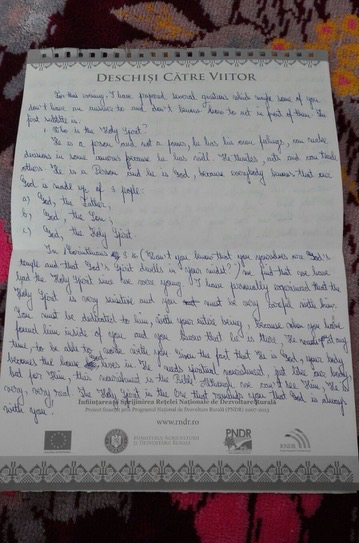 DESCHIȘI CĂTRE VIITOR
For this evening, I have prepared several questions which maybe some of you
don't have an answer to and don't know how to act in front of them. The
first subtitle is:
1. Who is the Holy Spirit?
He is a person and not a power, he has his own feelings, can make
decisions in some because he has will. He thinks, acts and can teach
others. He is a Person and he is God, because everybody knows that our
God is made up of 3 people:
a) God, the Father;
b) God, the Son;
c) God, the Holy Spirit.
In Corinthians 3:16 ("Don't you know that you yourselves are God's
temple and that God's Spirit dwells in your midst?") we find that we have
had the Holy Spirit since we were young. I have personally experienced that the
Holy Spirit is very sensitive and you must be very careful with him.
You must be dedicated to him, with your entire being, because when you have
found him inside of you and you know that he is there. He needs
time, to be able to work with you. Given the fact that He is God, your body
becomes the house God lives in. He needs spiritual nourishment, just like our body
but for Him, this nourishment is the Bible! Although we can't see Him, He is
very, very real. The Holy Spirit is the One that reminds you that God is always
with you.
Înființarea și Sprijinirea Rețelei Naționale de Dezvoltare Rurală
Proiect finanțat prin Programul Național de Dezvoltare Rurală (PNDR) 2007-2013
www.rndr.ro
MINISTERUL AGRICULTURII
ȘI DEZVOLTĂRII RURALE
PNDR
RNDR